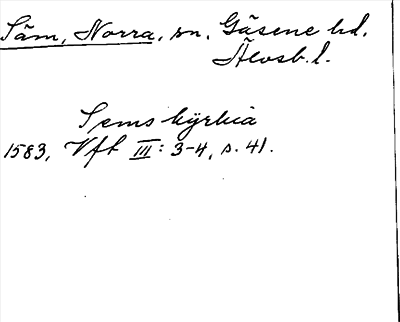 Säm, Norra, sn. Gäsene hd.
Älvsb. l.
Sems kyrkia
1583, Vft III: 3-4, s. 41.